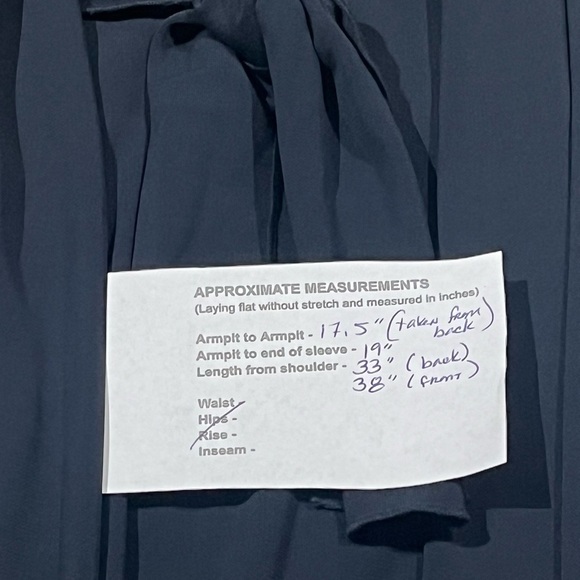 APPROXIMATE MEASUREMENTS
(Laying flat without stretch and measured in inches)
Armpit to Armpit - 17.5" (taken from back)
Armpit to end of sleeve - 19"
Length from shoulder - 33" (back)
38" (front)
Waist -
Hips -
Rise -
Inseam -